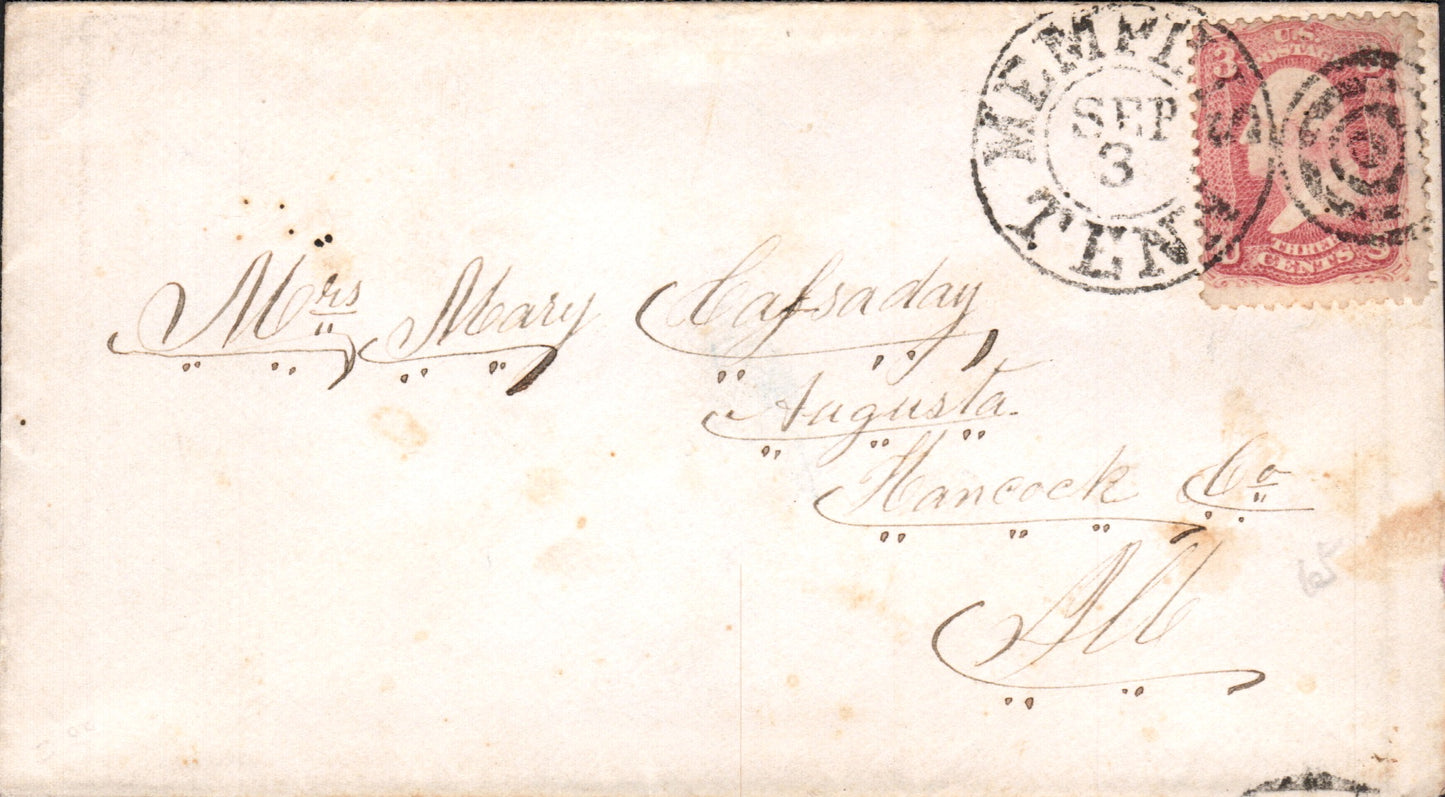 MEMPHIS
SEP
3
TEN
U.S.
POSTAGE
3
THREE
CENTS
Mrs Mary Cassaday
Augusta
Hancock Co
Ill
65